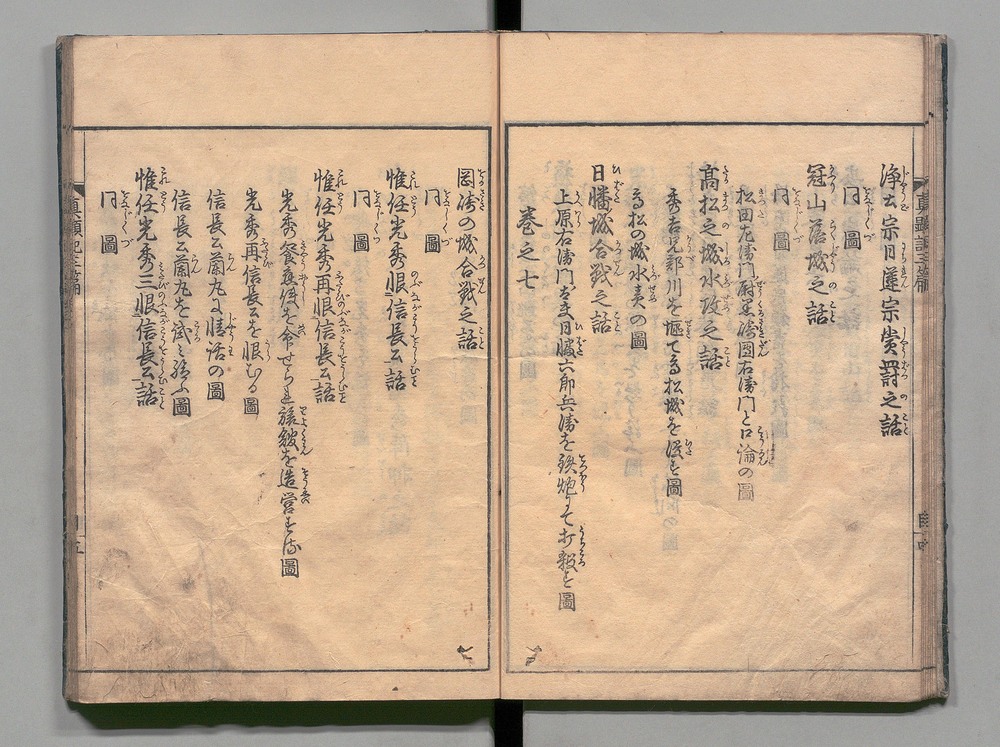 浄土宗日蓮宗賞罰之話
同圖
冠山落城之話
同圖
松田左衛門尉黒崎團右衛門と口論の圖
髙松之城水攻之話
秀吉兄部川を堰て高松城を浸す圖
高松の城水責の圖
日幡城合戰之話
上原右衛門古き日幡六郎兵衛を鉄炮にて打殺す圖
巻之七
岡崎の城合戰之話
同圖
惟任光秀恨信長公話
同圖
惟任光秀再恨信長公話
光秀饗應役を命せられ旅舘を造営する圖
光秀再信長公を恨むる圖
信長公蘭丸に情話の圖
信長公蘭丸を試ミ給ふ圖
惟任光秀三恨信長公話
同圖
真顕記三篇